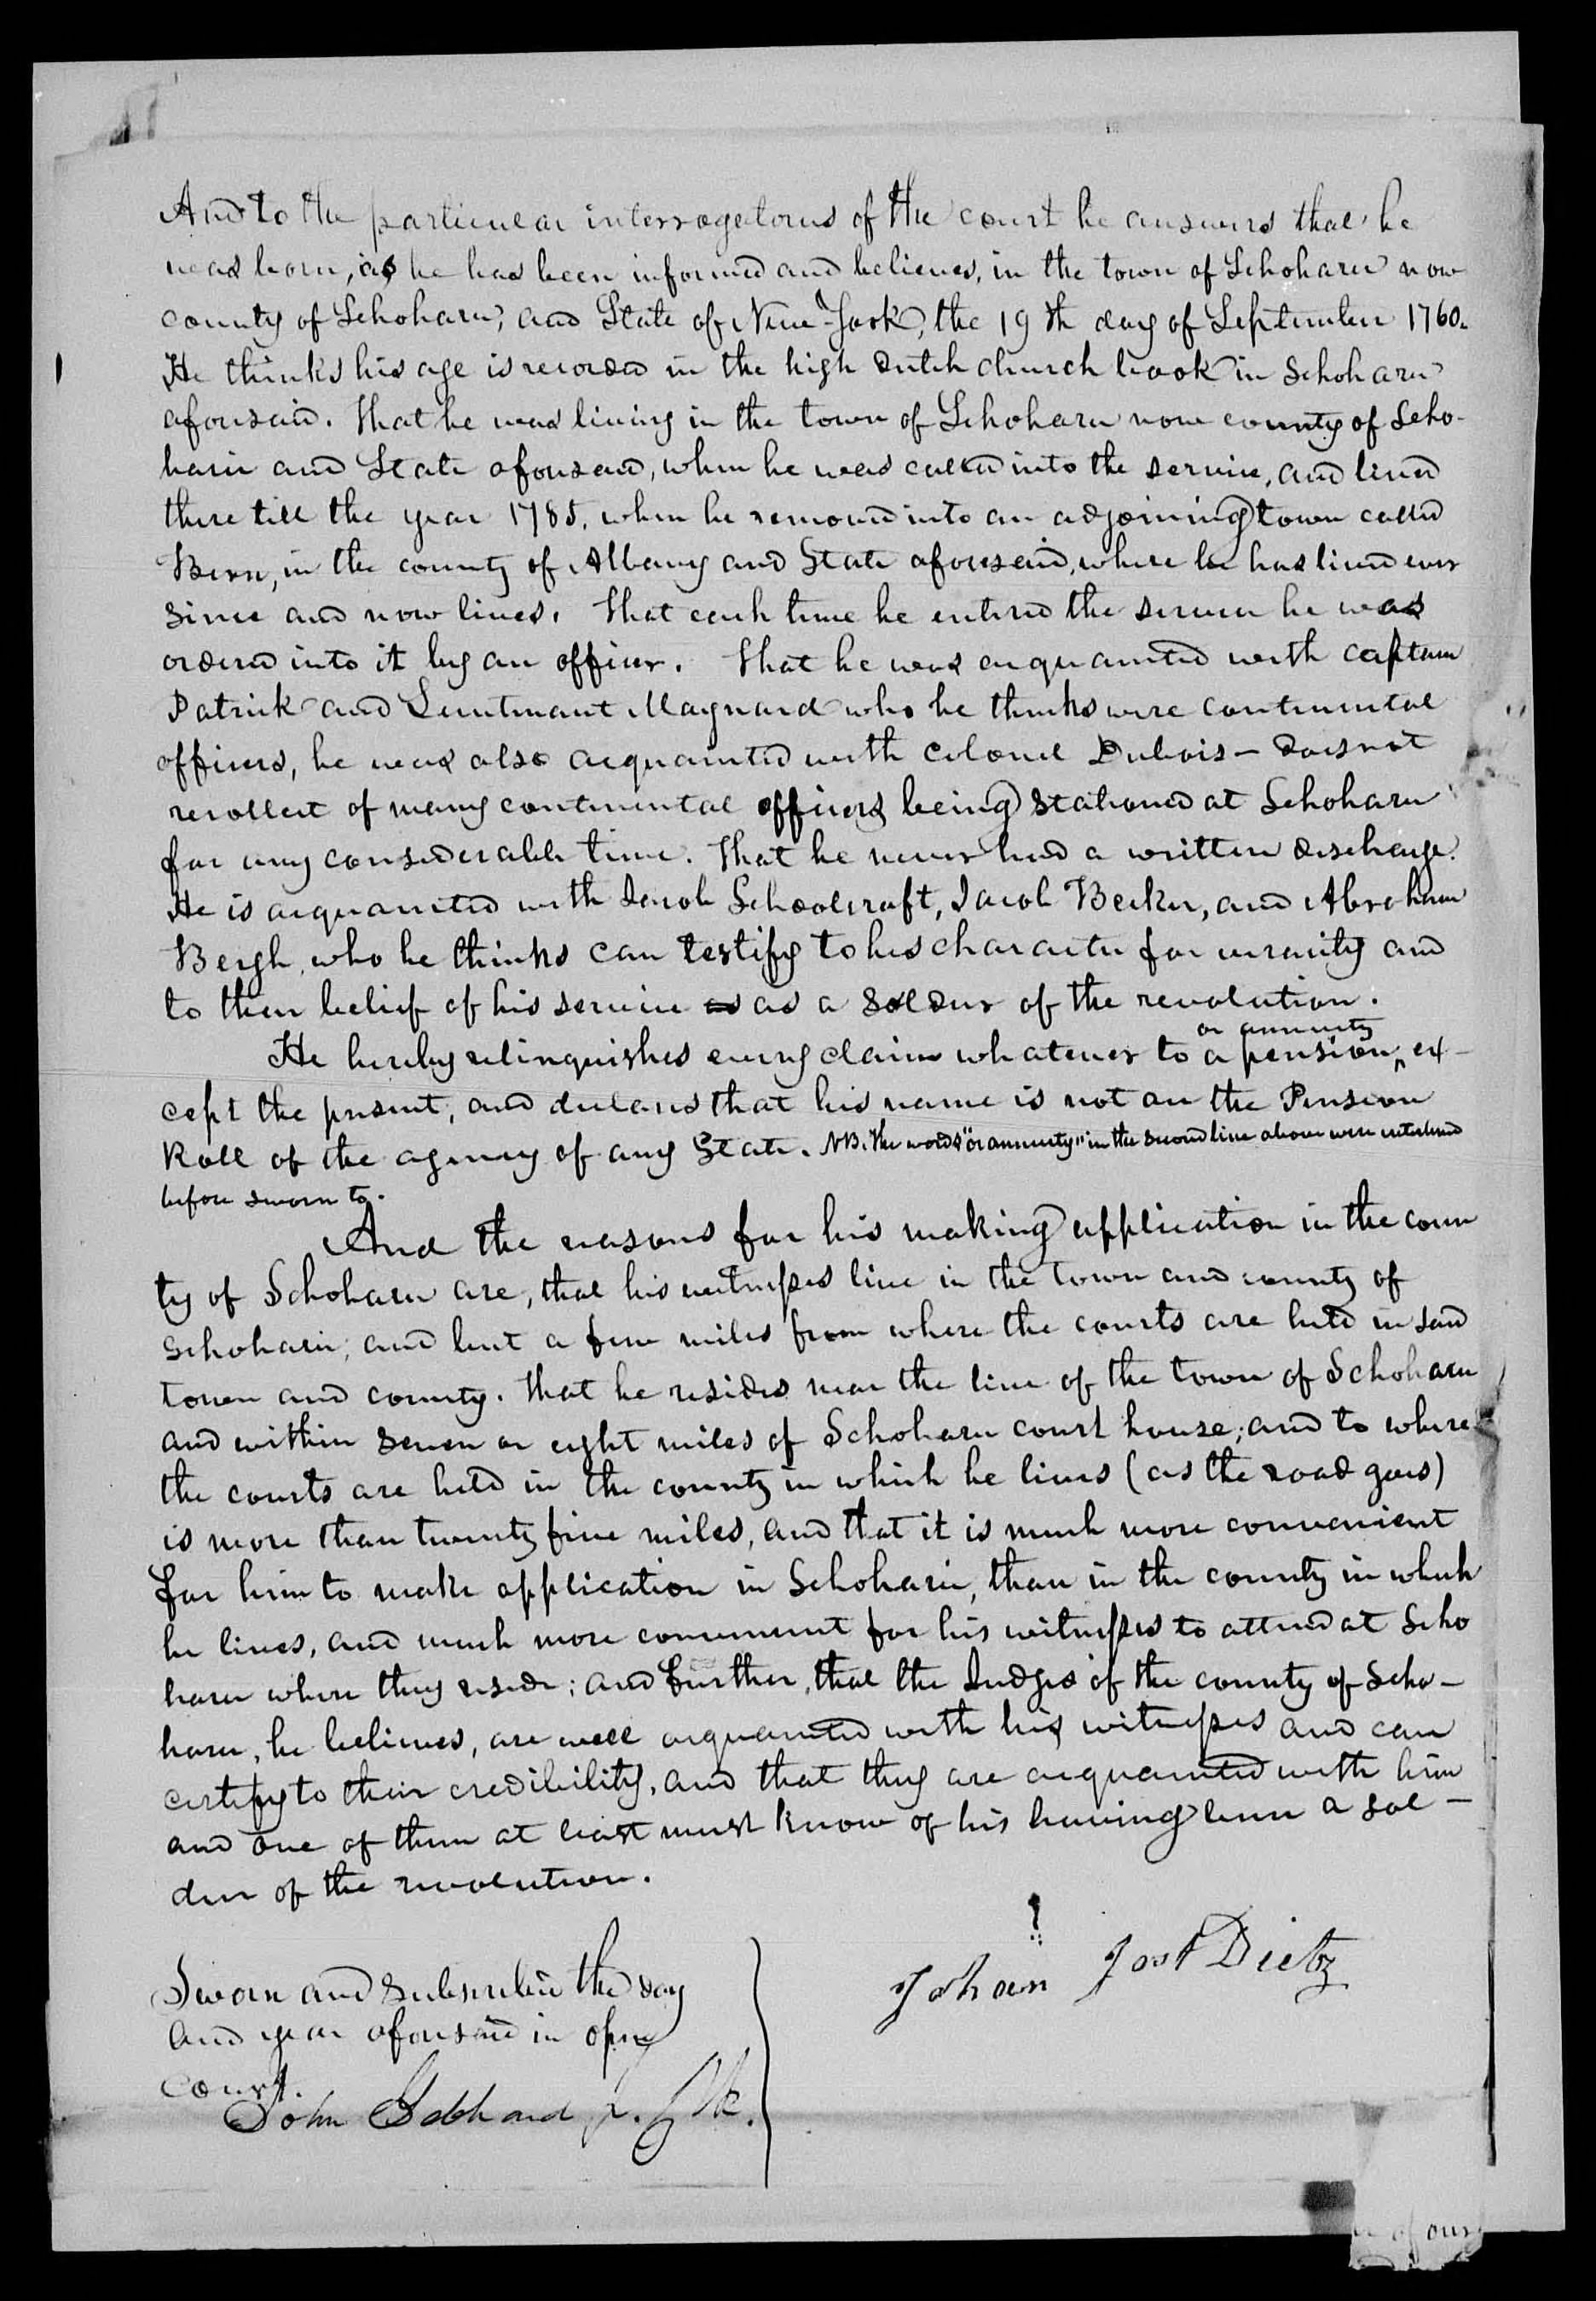 And to the particular interrogatories of the court he answers that he
was born, as he has been informed and believes, in the town of Schoharie now
county of Schoharie, and State of New-York, the 19th day of September 1760.
He thinks his age is recorded in the high dutch church book in Schoharie
aforesaid. That he was living in the town of Schoharie now county of Scho-
harie and State aforesaid, when he was called into the service, and lived
there till the year 1785, when he removed into an adjoining town called
Bern, in the county of Albany and State aforesaid, where he has lived ever
since and now lives. That each time he entered the service he was
ordered into it by an officer. That he was acquainted with captain
Patrick and Lieutenant Maynard who he thinks were continental
officers, he was also acquainted with Colonel Dubois – does not
recollect of many continental officers being stationed at Schoharie
for any considerable time. That he never had a written discharge.
He is acquainted with Jacob Schoolcraft, Jacob Becker, and Abraham
Bergh, who he thinks can testify to his character for veracity and
to their belief of his service as as a soldier of the revolution.
or annuity
He hereby relinquishes every claim whatever to a pension ^ ex-
cept the present, and declares that his name is not on the Pension
Roll of the agency of any State. NB. The words "or annuity" in the second line above were interlined
before sworn to.
And the reasons for his making application in the coun
ty of Schoharie are, that his witnesses live in the town and county of
Schoharie, and but a few miles from where the courts are held in said
town and county. That he resides near the line of the town of Schoharie
and within seven or eight miles of Schoharie court house; and to where
the courts are held in the county in which he lives (as the road goes)
is more than twenty five miles, and that it is much more convenient
for him to make application in Schoharie, than in the county in which
he lives, and much more convenient for his witnesses to attend at Scho
harie where they reside; and further, that the Judges of the county of Scho-
harie, he believes, are well acquainted with his witnesses and can
certify to their credibility, and that they are acquainted with him
and one of them at least must know of his having been a sol-
dier of the revolution.
Johan Jost Dietz
Sworn and subscribed the day
and year aforesaid in open
court.
John Gebhard Jr. Clk.
of our